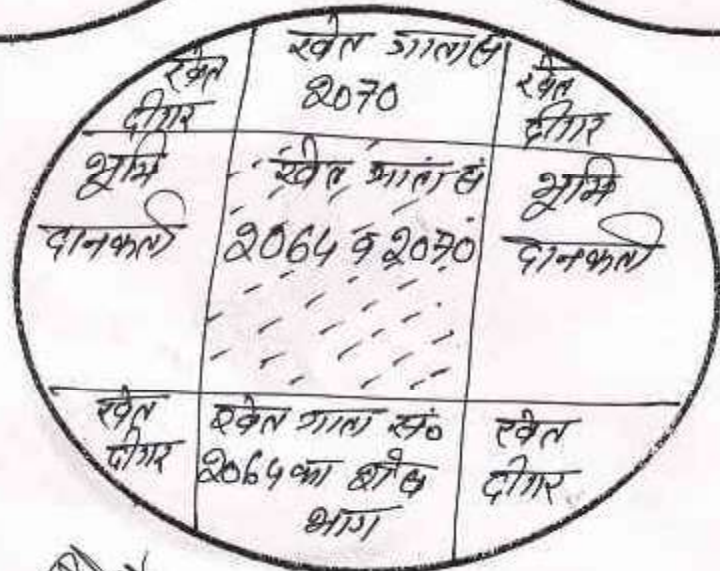 खेत
दीगर
खेत गाटा सं
2070
खेत
दीगर
भूमि
दानकर्ता
खेत गाटा सं
2064 व 2070
भूमि
दानकर्ता
खेत
दीगर
खेत गाटा सं०
2064 का शेष
भाग
खेत
दीगर